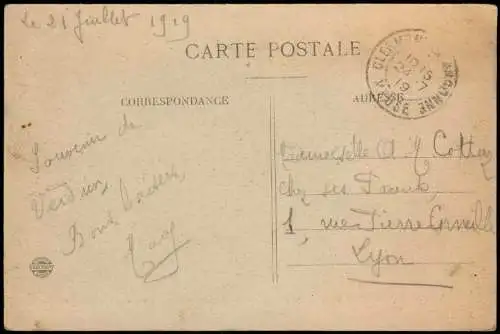 Le 21 Juillet 1919
CARTE POSTALE
CORRESPONDANCE
ADRESSE
CLERMONT EN ARGONNE
MEUSE
Souvenir de
Verdun
Bons baisers
Mademoiselle A
chez ses Parents
1, rue Pierre Corneille
Lyon